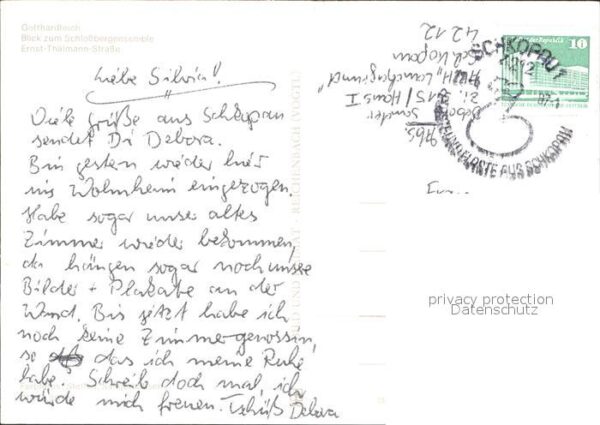 Gotthardteich
Blick zum Schloßbergensemble
Ernst-Thälmann-Straße
Liebe Silvia!
Viele Grüße aus Schkopau
sendet Di Debora.
Bin gestern wieder hier
ins Wohnheim eingezogen.
Habe sogar unser altes
Zimmer wieder bekommen,
da hängen sogar noch unsre
Bilder + Plakate an der
Wand. Bis jetzt habe ich
noch keine Zimmergenossin,
so das ich meine Ruhe
habe. Schreib doch mal, ich
würde mich freuen. Tschüß Debora
Abs.
Debora
Zi. 415/Haus I
Schkopau
4212
SCHKOPAU 1
4212
AUS SCHKOPAU
10
privacy protection
Datenschutz